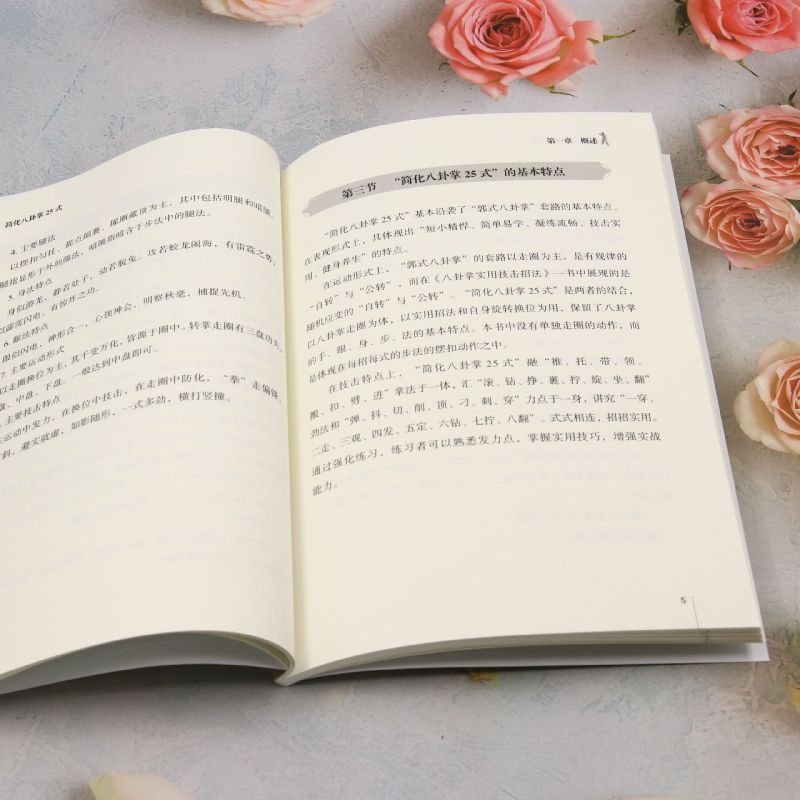 简化八卦掌 25 式
4. 主要腿法
以摆扣勾挂、提点蹬裹、摧刚截顶为主，其中包括明腿和暗腿，
腿指显形于外的腿法，暗腿指暗含于步法中的腿法。
5. 身法特点
身似游龙，静若处子，动若脱兔，攻若蛟龙闹海，有雷霆之势，
似露荡闪电，有惊炸之功。
6. 眼法特点
眼似闪电，神形合一，心领神会，明察秋毫，捕捉先机。
7. 主要运动形式
以走圈换位为主，其千变万化，皆源于圈中。转掌走圈有三盘功夫，
盘、中盘、下盘。一般达到中盘即可。
主要技击特点
运动中发力，在换位中技击，在走圈中防化，“拳”走偏锋，
斜，避实就虚，如影随形，一式多劲，横打竖撞。
第一章 概述
第三节 “简化八卦掌 25 式”的基本特点
“简化八卦掌 25 式”基本沿袭了“郭式八卦掌”套路的基本特点。
在表现形式上，其体现出“短小精悍、简单易学、凝练流畅、技击实
用、健身养生”的特点。
在运动形式上，“郭式八卦掌”的套路以走圈为主，是有规律的
“自转”与“公转”，而在《八卦掌实用技击招法》一书中展现的是
随机应变的“自转”与“公转”。“简化八卦掌 25 式”是两者的结合，
以八卦掌走圈为体，以实用招法和自身旋转换位为用，保留了八卦掌
的手、眼、身、步、法的基本特点。本书中没有单独走圈的动作，而
是体现在每招每式的步法的摆扣动作之中。
在技击特点上，“简化八卦掌 25 式”融“推、托、带、领、
搬、扣、劈、进”掌法于一体，汇“滚、钻、挣、裹、拧、旋、坐、翻”
劲法和“弹、抖、切、削、顶、刁、刺、穿”力点于一身，讲究“一穿、
二走、三观、四发、五定、六钻、七拧、八翻”。式式相连，招招实用。
通过强化练习，练习者可以熟悉发力点，掌握实用技巧，增强实战
能力。
5